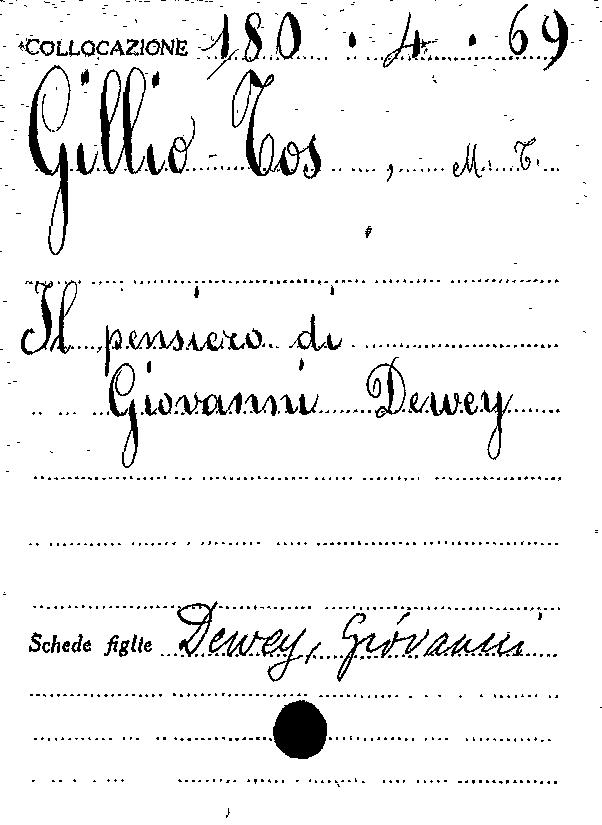 COLLOCAZIONE 180 . 4 . 69
Gillio-Tos , M. T.
Il pensiero di
Giovanni Dewey
Schede figlie Dewey, Giovanni